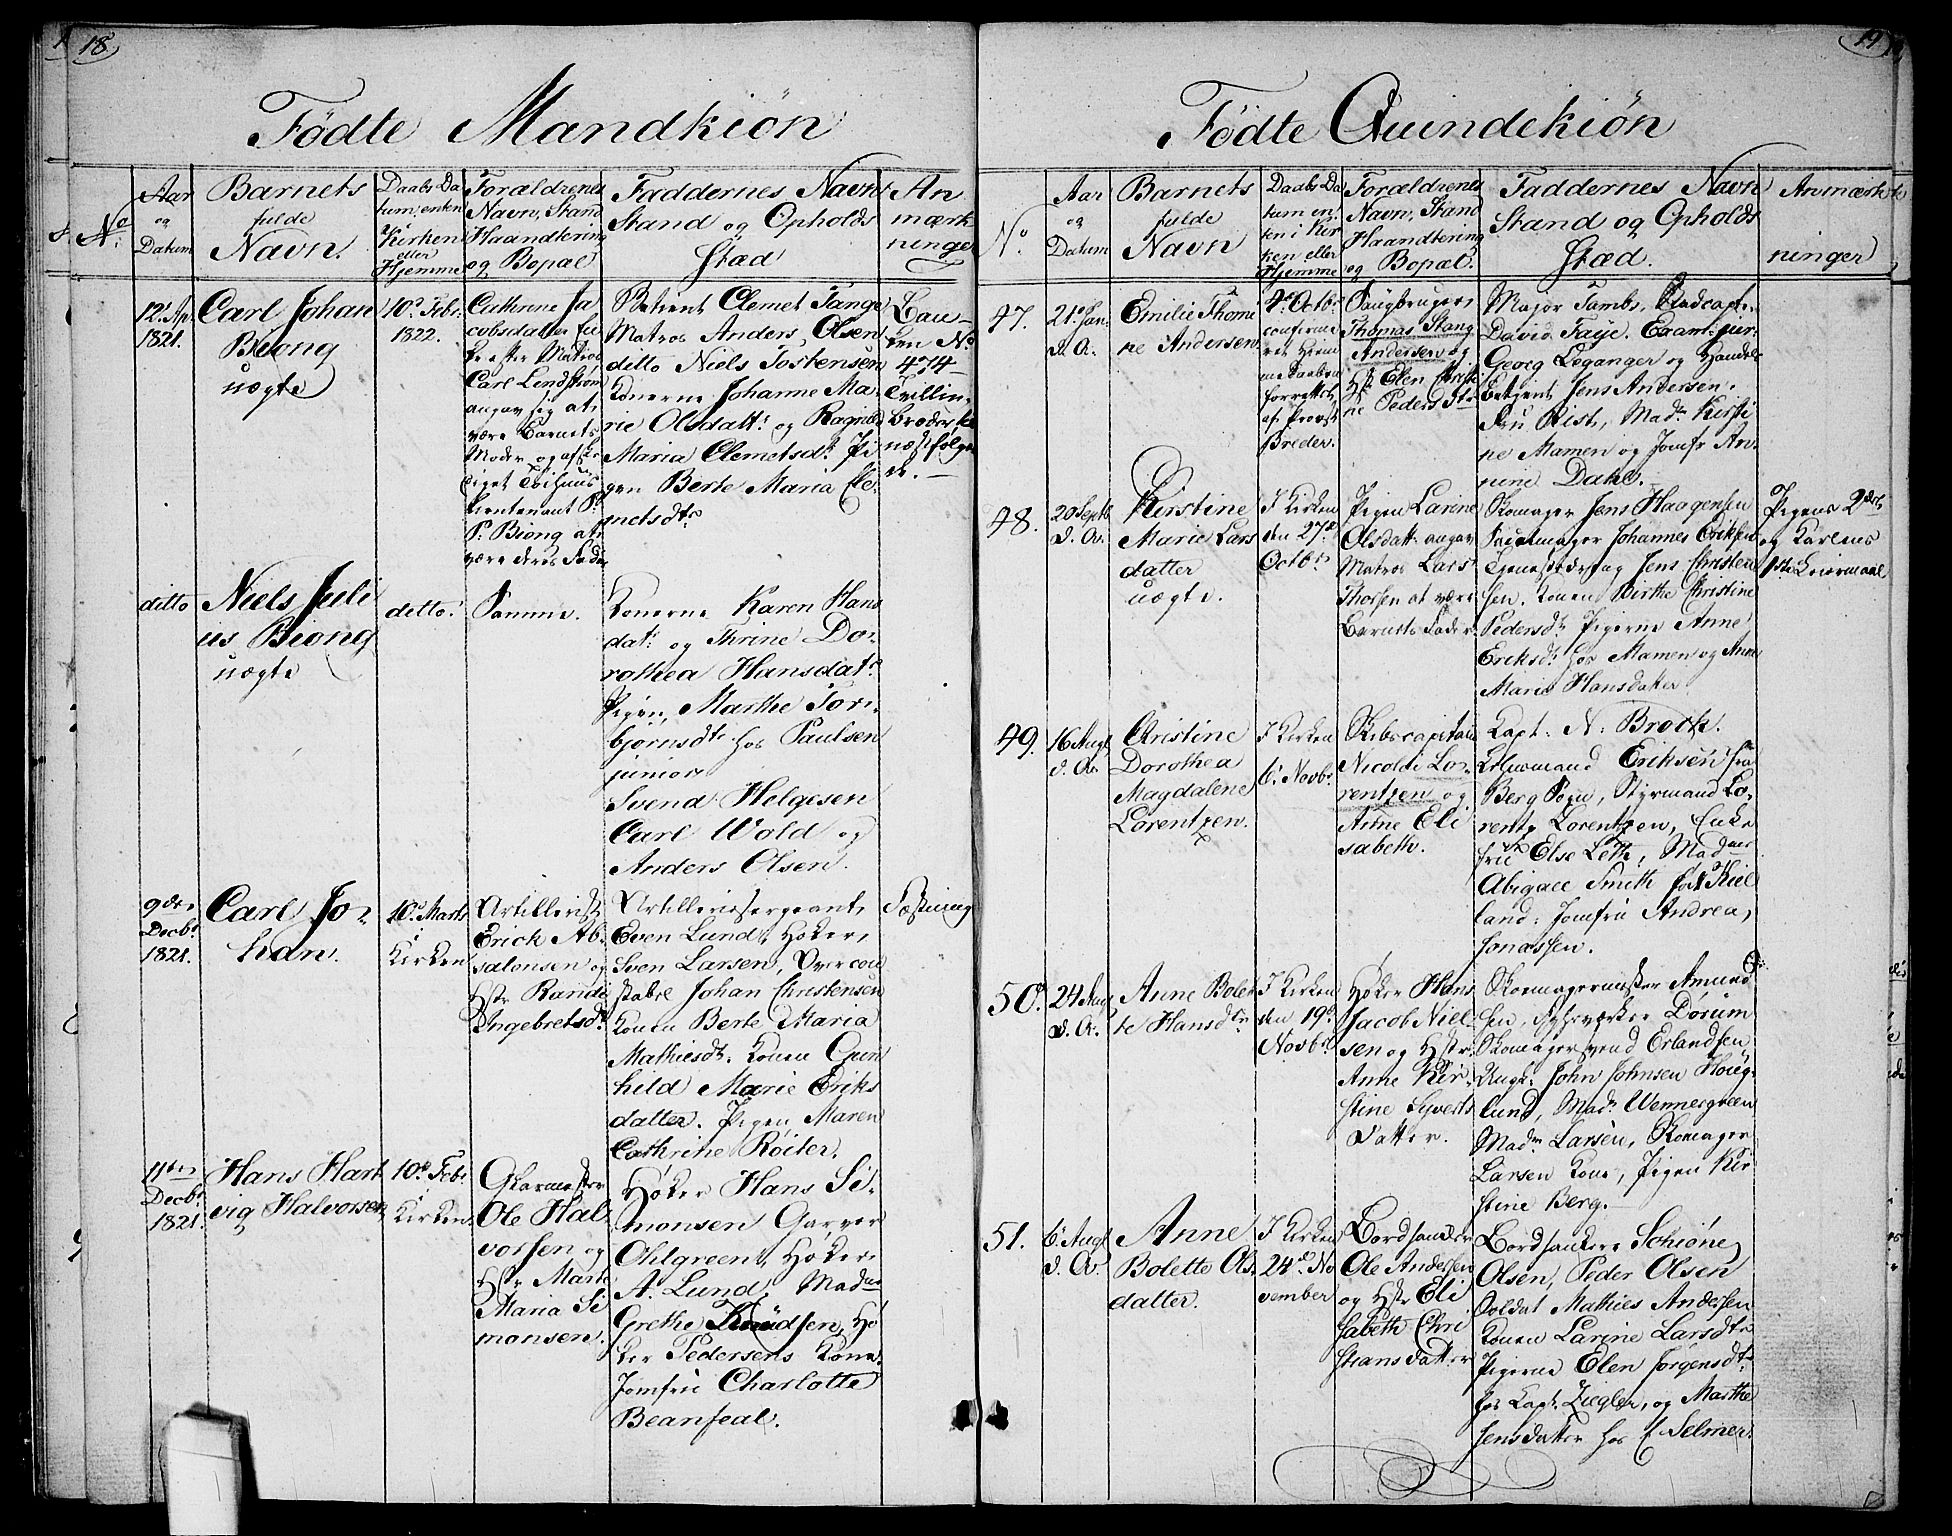 18
Födte Mandkiön
No:
Aar
og
Datum
Barnets
fulde
Navn.
Daabs Da
tum, enten
i Kirken
eller
Hjemme
Forældrenes
Navn, Stand
Haandtering
og Bopæl
Faddernes Navn
Stand og Opholds
Stæd
An
mærk
ninger
12t Ap
1821.
Carl Johan
Biong
uægte
10d Febr:
1822.
Cathrine Ja
cobsdatter
efter Matros
Carl Lindstrøm
angav sig at
være Barnets
Moder og afske
diget Toldhuus
Lieutenant P.
P. Biong at
være deres Fader
Clemet Tange
Matros Anders Olsen
ditto Niels Tostensen
Konerne Johanne Ma-
rie Olsdattr og Ragnild
Maria Clemetsdtr Pi
gen Berte Maria Cle-
metsdtr
No
474
Tvillin-
broder
næstfølgen
de.
ditto
Niels Juli
us Biong
uægte
ditto.
Samme.
Konerne Karen Hans
datr og Thrine Do-
rothea Hansdatr
Pigen, Marthe Tor-
bjørnsdtr hos Paulsen
junior
Svend Helgesen
Carl Wold og
Anders Olsen.
9de
Decbr
1821.
Carl Jo-
han.
10d Marts
Kirken
Artillerist
Erick Ab-
salonsen og
Hstr Randi
Ingebretsdr
Artilleriesergeant
Even Lund, Høker
Sven Larsen, Overcon
stabel Johan Christensen
Konen Berte Maria
Mathiesdtr. Konen Gun
hild Marie Eriks
datter. Pigen Maren
Cathrine Röiter.
Fæstning
11te
Decbr
1821.
Hans Hart
vig Halvorsen
10d Febr
Kirken
Glarmester
Ole Hal
vorsen og
Hstr Marte
Maria Si
monsen.
Høker Hans Si-
monsen Garver
Ohlgreen, Høker
A. Lund, Madme
Grethe Knudsen, Hø
ker Pedersens Kone
Jomfru Charlotte
Beanfeal.
19
Födte Quindekiön
No
Aar
og
Datum
Barnets
fulde
Navn
Daabs Da
tum en
ten i Kir
ken eller
Hjemme
Forældrenes
Navn, Stand
Haandtering
og Bopæl.
Faddernes Navn
Stand og Opholds
Stæd.
Anmærk
ninger
47.
21d Jan:
d. A.
Emilie Thomi
ne Andersen
4d Octbr
confirme
ret Hiem
medaaben
forrettet
af Provst
Breder.
Saugbruger
Thomas Stang
Andersen og
Hstr Elen Christi
ne Pedersdtr
Major Tambs, Stadcapt:
David Faye. Exam: jur:
Georg Leganger og Handels
Betjent Jens Andersen.
Fru Rist, Madm Kirsti
ne Mamen og Jomfr An-
nine Dahl.
48.
20 Septb
d. A.
Kirstine
Marie Lars
datter
uægte.
I Kirken
den 27d
Octbr
Pigen Larine
Olsdattr angav
Matros Lars
Thorsen at være
Barnets Fader.
Skomager Jens Haagensen
Skomager Johannes Eriksen
Tjenestedreng Jens Christen
sen. Konen Birthe Christine
Pedersdtr Pigerne Anne
Eriksdtr hos Mamen og Anne
Marie Hansdatter.
Pigens 2det
og Karlens
1ste Leiermaal
49.
16 Augt
d. A.
Cristine
Dorothea
Magdalene
Lorentzen.
I Kirken
6t Novbr
Skibscapitain
Nicolai Lo-
rentzen og
Anne Eli
sabeth.
Capt: N: Brock.
Lehnsmand Eriksen fra
Berg Sogn, Styrmand Lo
rentz Lorentzen, Enke
frue Else Leth, Madmer
Abigael Smith født Kiel
land. Jomfru Andrea
Jonassen.
50.
24 Aug
d. A.
Anne Bolet
te Hansdtr
I Kirken
den 19d
Novbr
Høker Hans
Jacob Niel-
sen og Hstr
Anne Kir-
stine Syverts
datter.
Skomagermester Amund
sen, Dørum
Skomagersvend Erlandsen
Ungk: John Johnsen Houg-
lund, Madm Wennergreen
Madm Larsen, Skomager
Larsen Kone, Pigen Kir
stine Berg.
51.
6t Augt
d. A.
Anne
Bolette Ols-
datter.
I Kirken
24d No
vember
Bordsanker
Ole Andersen
og Hstr Eli
sabeth Chri
stiansdatter
Bordsankere Schiøne
Olsen, Peder Olsen
Soldat Mathies Andersen
Konen Larine Larsdtr
Pigerne Elen Jørgensdtr
hos Capt. Ziegler, og Marthe
Jensdatter hos f Selmer.